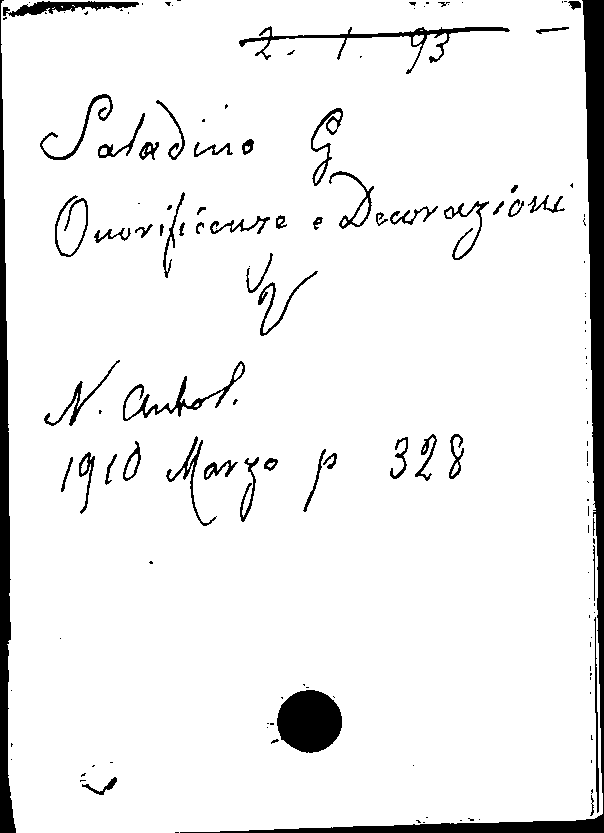 2. 1. 93
Saladino G
Onorificenze e Decorazioni
N. Antol.
1910 Marzo p 328